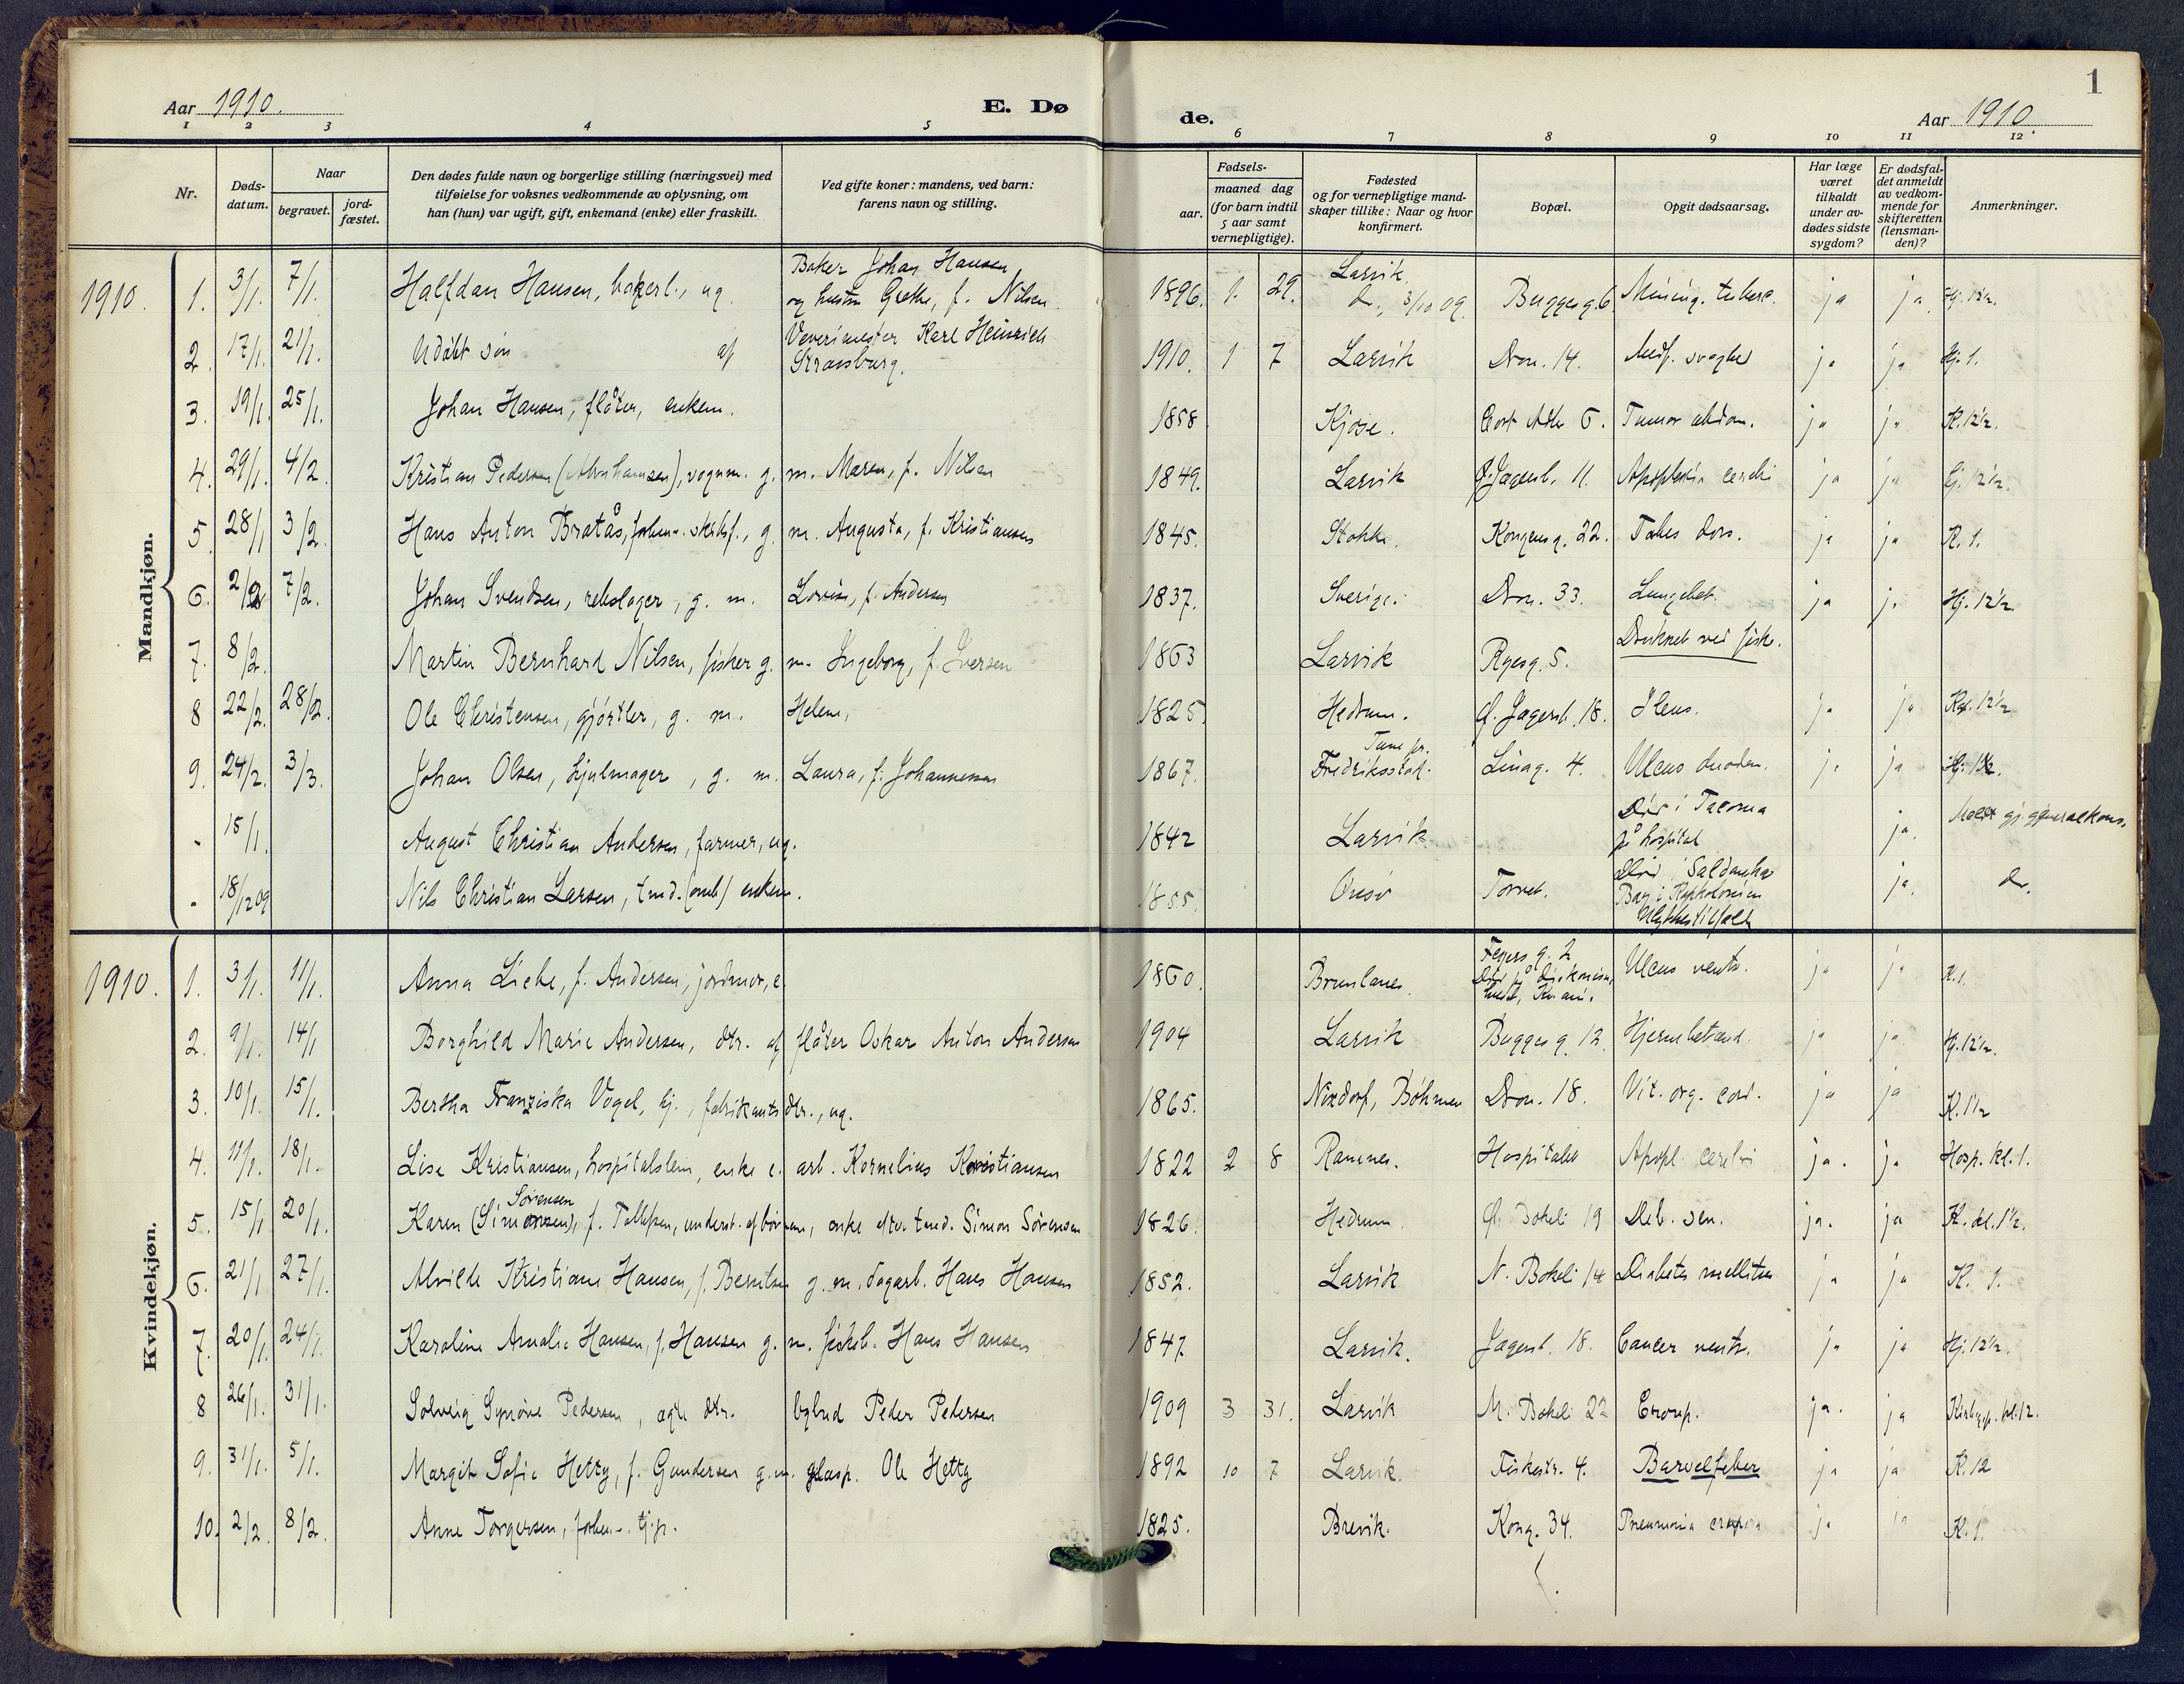 1
Aar 1910. E. Døde. Aar 1910.
1 2 3 4 5 6 7 8 9 10 11 12
Nr. | Dødsdatum. | Naar begravet. | jordfæstet. | Den dødes fulde navn og borgerlige stilling (næringsvei) med tilføielse for voksnes vedkommende av oplysning, om han (hun) var ugift, gift, enkemand (enke) eller fraskilt. | Ved gifte koner: mandens, ved barn: farens navn og stilling. | Fødsels- aar. | maaned dag (for barn indtil 5 aar samt vernepligtige). | Fødested og for vernepligtige mandskaper tillike: Naar og hvor konfirmert. | Bopæl. | Opgit dødsaarsag. | Har læge været tilkaldt under avdødes sidste sygdom? | Er dødsfaldet anmeldt av vedkommende for skifteretten (lensmanden)? | Anmerkninger.
Mandkjøn.
1910. 1. 3/1. 7/1. Halfdan Hansen, bakerl., ug. Baker Johan Hansen og hustru Grethe, f. Nilsen 1896. 1. 29. Larvik. do, 3/10 09. Bugges g. 6. Mening. tuberc. ja ja.
2. 17/1. 21/1. Udøbt søn af Væverimester Karl Heinrich Strassburg. 1910. 1 7 Larvik Dron. 14. Medf. svaghed ja ja Hj. 1.
3. 19/1. 25/1. Johan Hansen, flåter, enkem. 1858 Kjose. Cort Adler 6. Tumor abdom. ja ja K. 12½.
4. 29/1. 4/2. Kristian Pedersen (Abrahamsen), vognm. g. m. Maren, f. Nilsen 1849. Larvik Ø. Jagersb. 11. Apoplexia cerebri ja ja 12½.
5. 28/1 3/2. Hans Anton Bratås, forhenv. skibsf., g. m. Augusta, f. Kristiansen 1845. Stokke. Kongensg. 22. Tabes dors. ja ja K. 1.
6. 2/2 7/2. Johan Svendsen, rebslager, g. m. Lovise, f. Andersen 1837. Sverige. Dron. 33. Lungebet. ja ja Hj. 12½.
7. 8/2. Martin Bernhard Nilsen, fisker g. m. Ingeborg, f. Iversen 1863 Larvik Ryesg. 5. Druknet ved fiske.
8 22/2. 28/2. Ole Christensen, gjørtler, g. m. Helene, 1825 Hedrum. Ø. Jagersb. 18. Ileus. ja ja 12½
9. 24/2. 3/3. Johan Olsen, hjulmager, g. m. Laura, f. Johannessen 1867. Tune pr. Fredriksstad. Linag. 4. Ulcus duoden. ja ja
- 15/1. August Christian Andersen, farmer, ug. 1842 Larvik Død i Tacoma på hospital ja. Meldt gj. generalkons.
- 18/12 09 Nils Christian Larsen, tmd. enkem. 1855. Onsø Torvet. Død i Saldanha Bay i Kapkolonien Ulykkestilfælde ja. do.
Kvindekjøn.
1910. 1. 3/1. 11/1. Anna Liebe, f. Andersen, jordmor, e. 1860. Brunlanes. Feyers g. 2 Død på diakonissehuset, Kr.ania. Ulcus ventr. ja ja K. 1.
2. 9/1. 14/1 Borghild Marie Andersen, dtr. af flåter Oskar Anton Andersen 1904 Larvik Bugges g. 12. Hjernebetænd. ja ja Hj. 12½.
3. 10/1. 15/1. Bertha Franziska Vogel, hj., fabrikants dtr., ug. 1865. Nixdorf, Böhmen Dron. 18. Vit. org. cord. ja ja K. 1½
4. 11/1. 18/1. Lise Kristiansen, hospitalslem, enke e. arb. Kornelius Kristiansen 1822 2 8 Ramnes. Hospitalet Apopl. cerebri ja. ja Hosp. kl. 1.
5. 15/1 20/1. Karen (Simonsen) Sørensen, f. Tollefsen, underst. af børnene, enke efter tmd. Simon Sørensen 1826. Hedrum. Ø. Bøkeli 19 Deb. sen. ja. ja K. kl. 1½.
6. 21/1 27/1. Alvilde Kristiane Hansen, f. Berntsen g. m. dagarb. Hans Hansen 1852. Larvik N. Bøkeli 14 Diabetes mellitus ja ja K. 1.
7. 20/1. 24/1. Karoline Amalie Hansen, f. Hansen g. m. Hans Hansen 1847. Larvik. Jagersb. 18. Cancer ventr. ja ja Hj. 12½.
8 26/1. 31/1. Solveig Synøve Pedersen, ægte dtr. bybud Peder Pedersen 1909 3 31. Larvik M. Bøkeli 22 Croup. ja. ja kl. 12.
9. 31/1. 5/1. Margit Sofie Hetty, f. Gundersen g. m. glasp. Ole Hetty 1892 10 7 Larvik. Fiskestr. 4. Barselfeber ja ja K. 12
10. 2/2. 8/2. Anne Torgersen, forhenv. tj.p. 1825. Brevik. Kong. 34. Pneumonia cruposa ja ja K. 1.